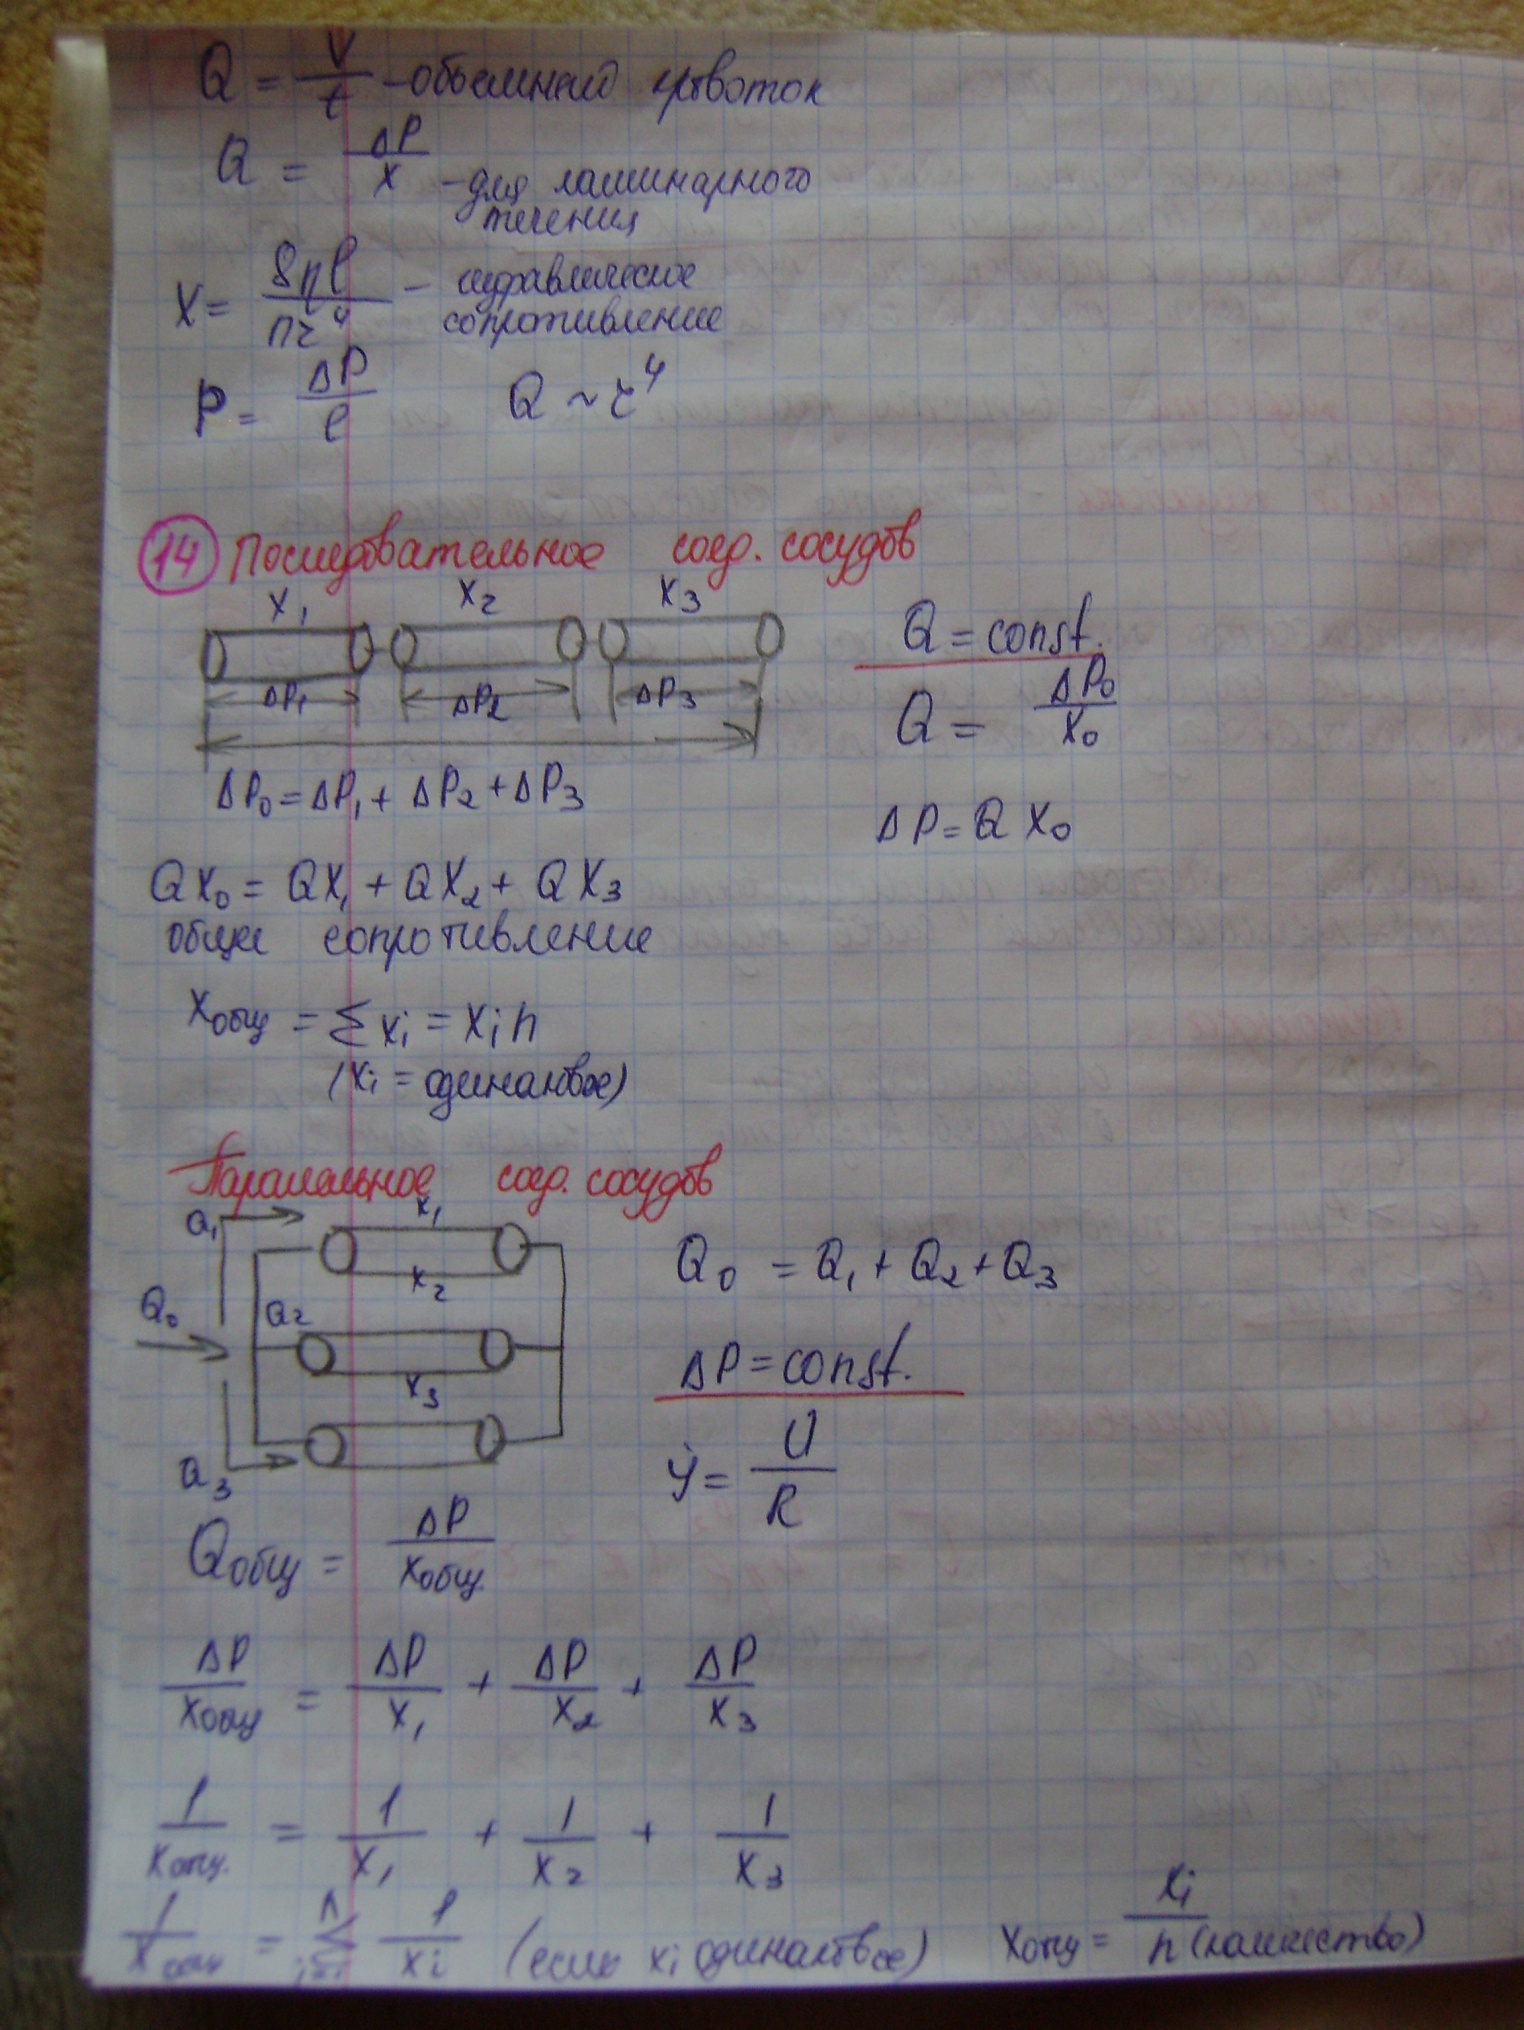 Q = V/t - объемный кровоток
Q = ΔP/X - для ламинарного
течения
X = 8ηl/πr⁴ - гидравлическое
сопротивление
P = ΔP/l Q ~ r⁴
14 Последовательное соед. сосудов
X₁ X₂ X₃
ΔP₁ ΔP₂ ΔP₃
Q = const.
Q = ΔP₀/X₀
ΔP₀ = ΔP₁ + ΔP₂ + ΔP₃
ΔP = Q X₀
QX₀ = QX₁ + QX₂ + QX₃
общее сопротивление
Xобщ = Σ xi = Xi n
(Xi = одинаковое)
Параллельное соед. сосудов
Q₁ X₁
X₂
Q₀ Q₂
X₃
Q₃
Q₀ = Q₁ + Q₂ + Q₃
ΔP = const.
Y = U/R
Qобщ = ΔP/Xобщ.
ΔP/Xобщ = ΔP/X₁ + ΔP/X₂ + ΔP/X₃
1/Xобщ. = 1/X₁ + 1/X₂ + 1/X₃
1/Xобщ = Σ 1/xi (если xi одинаковое) Xобщ = Xi/n (количество)